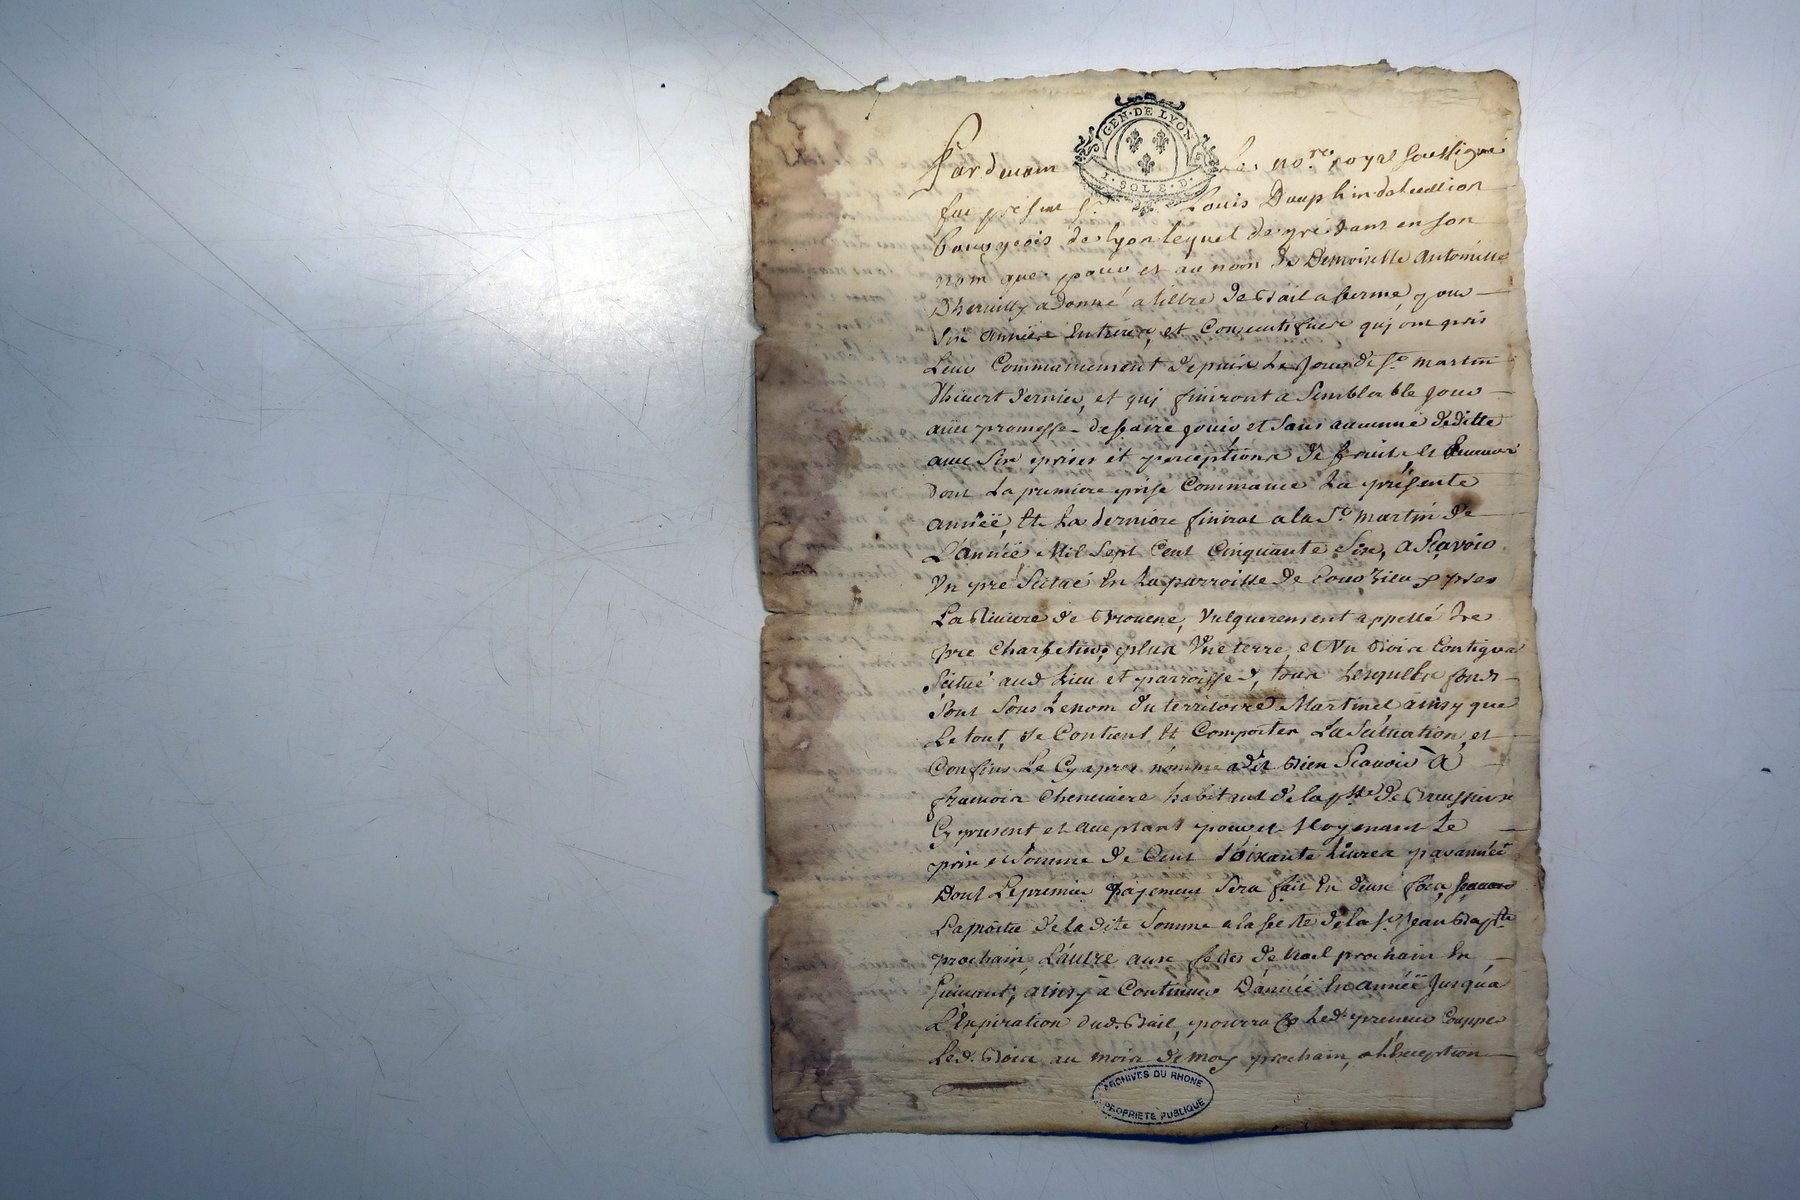 GEN·DE LYON
1·SOL 8·D·
Pardevant Les no.re royal soussigné
fut présent S.r Louis Dauphin
bourgeois de lyon lequel de gré tant en son
nom que pour et au nom de Demoiselle Antoinette
a donné a tiltre de Bail a ferme pour
Six années Entieres, et Consecutifves quj ont pris
Leur Commancement depuis Le Jour de St. martin
dhivert dernier, et quj finiront a Semblable Jour
avec promesse de faire jouir et sans aucunne déditte
avec Six prises et perceptions de fruits et
dont La premiere prise Commance La présente
année, Et La derniere finirat a la St. martin de
L'année Mil Sept Cent Cinquante Six, a Sçavoir
Un pré Scitué En La parroisse de près
La Riviere de Brevene, Vulguerement appellé Le
pré plus Une terre, et Un Bois Contigus
Scitué aud. Lieu et parroisse, tous Lesquells fonds
Sont Sous Le nom du territoire Martinet, ainsy que
Le tout, Se Contient Et Comporter La Scituation, et
Confins Le Cy apres nommé a dit Bien Scavoir À
francois habitant de la psse. de
Cy present et acceptant pour et Moyenant Le
prix et Somme de Cent Soixante Livres par année
Dont Le premier Pajement Sera fait En deux fois, scavoir
La moitié de la dite Somme a la feste de la St. Jean Bapte.
prochain, L'autre aux festes de Noel prochain En
Suivant, ainsy à Continuer D'année En année Jusqu'a
L'Expiration dud. Bail, pourra Led. preneur Coupper
Led. Bois au mois de may prochain, a l'Exception
ARCHIVES DU RHONE
PROPRIETE PUBLIQUE